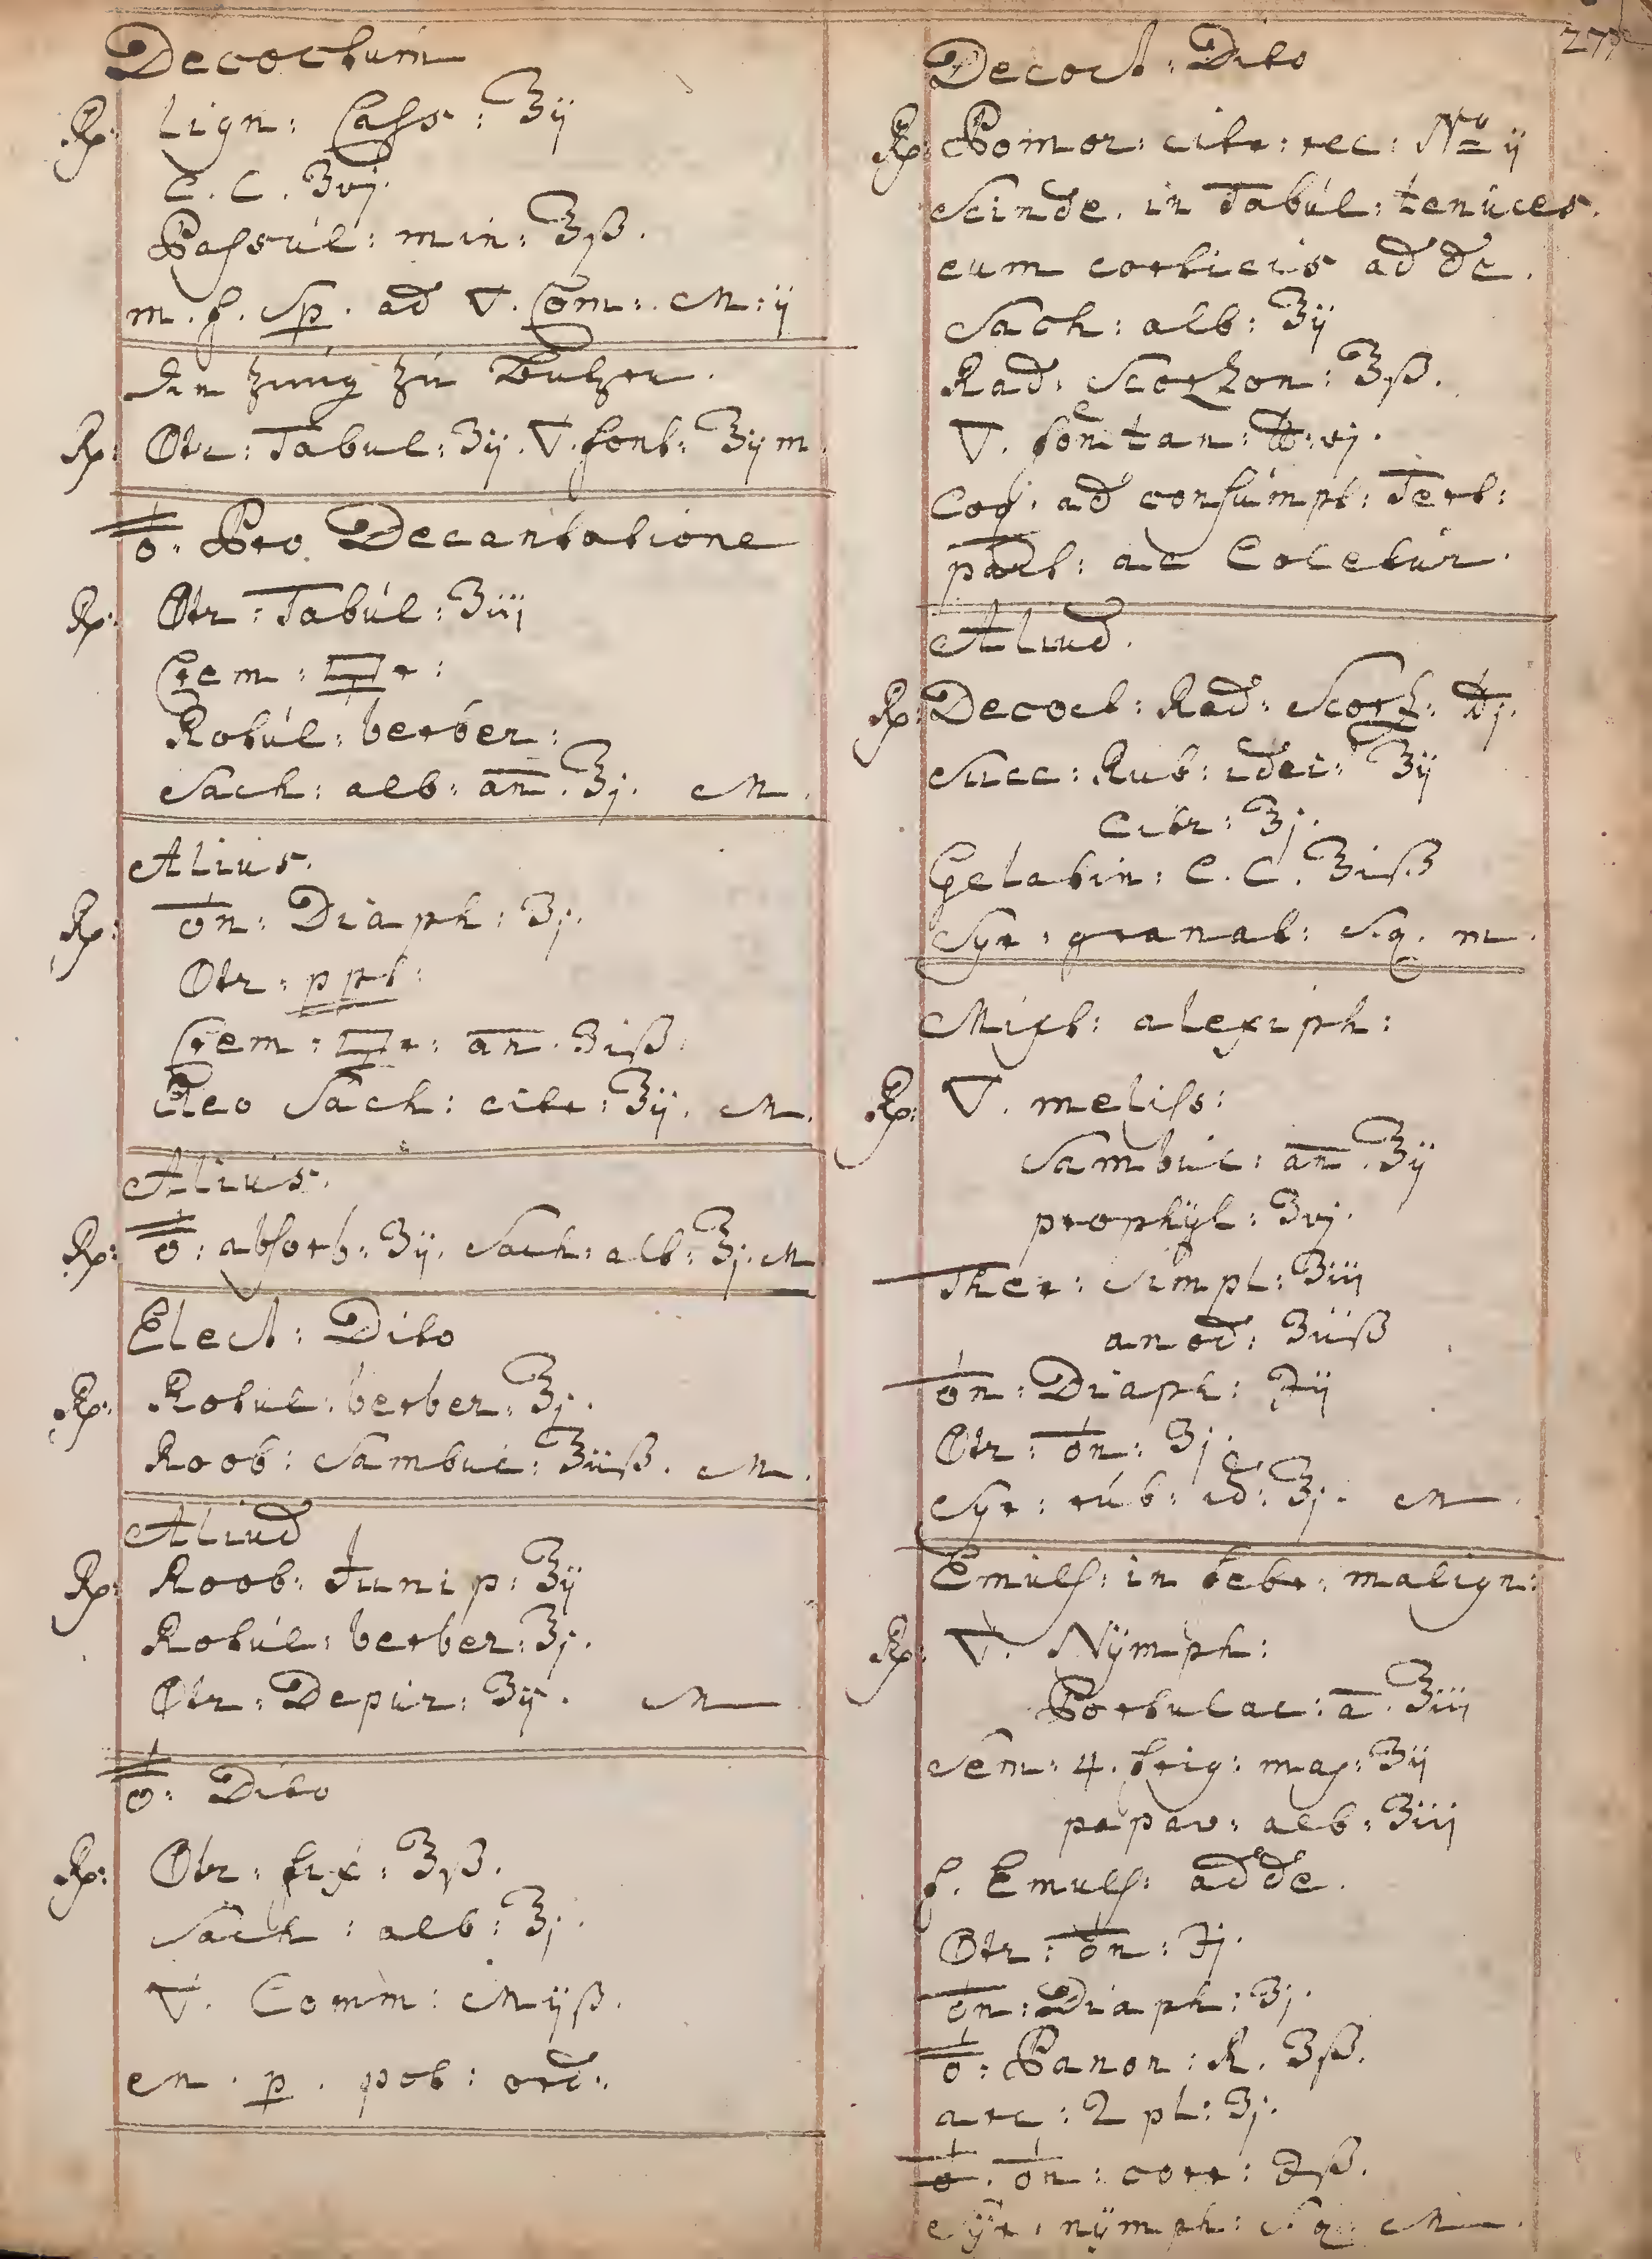 Decoctum
Rp: Lign: Cass: ʒij
C. C. ʒvj.
Passul: min: ℥ß.
m. f. Sp. ad ▽. Com:. M:ij
Rp: Otr: Tabul: ʒij. ▽. font: ℥ij m.
Pro Decantatione
Rp: Otr: Tabúl: ʒiij
Crem:
Rotúl: berber:
Sach: alb: an. ℥j. M.
Alius.
Rp: Diaph: ʒj.
Otr: ppt:
Crem: an. ʒiß.
Sach: citr: ℥ij. M.
Alius.
Rp: absorb: ʒij. Sach: alb: ℥j. M
Elect: Dito
Rp: Rotul: berber: ℥j.
Roob: Sambuc: ℥iiß. M.
Aliud
Rp: Roob: Junip: ℥ij
Rotúl: berber: ℥j.
Otr: Depur: ʒij. M
Dito
Rp: Otr: fix: ℥ß.
Sach: alb: ℥j.
▽. Comm: Mijß.
p. pot: ord:.
Decoct: Dito
Rp: Pomor: citr: rec: No ij
Scinde in Tabúl: tenúces.
cum corticis adde.
Sach: alb: ℥ij
Rad: Scorzon: ℥ß.
▽. fontan: ℔:vj.
Coq: ad consúmpt: Tert:
part: ac Coletúr.
Aliud.
Rp: Decoct: Rad: Scorz: ℔j.
Succ: Rub: idaei: ℥ij
Citr: ℥j.
Gelatin: C. C. ℥iß
Syr: granat: S.q. m.
Mixt: alexiph:
Rp: ▽. meliss:
Sambuc: an. ℥ij
prophÿl: ʒvj.
Ther: Simpl: ʒiij
anod: ʒiiß
Diaph: ℈ij
Otr: ʒj.
Syr: rúb: id: ℥j. M.
Emuls: in febr: malign:
Rp: ▽. Nÿmph:
Portulac: a. ℥iij
Sem: 4. frig: maj: ℥ij
papav: alb: ʒiij
f. Emuls: adde.
Otr: ℈j.
Diaph: ʒj.
Panon: R. ʒß.
arc: 2 pl: ʒj.
corr: ℈ß.
Sÿr: nÿmph: S.q. M.